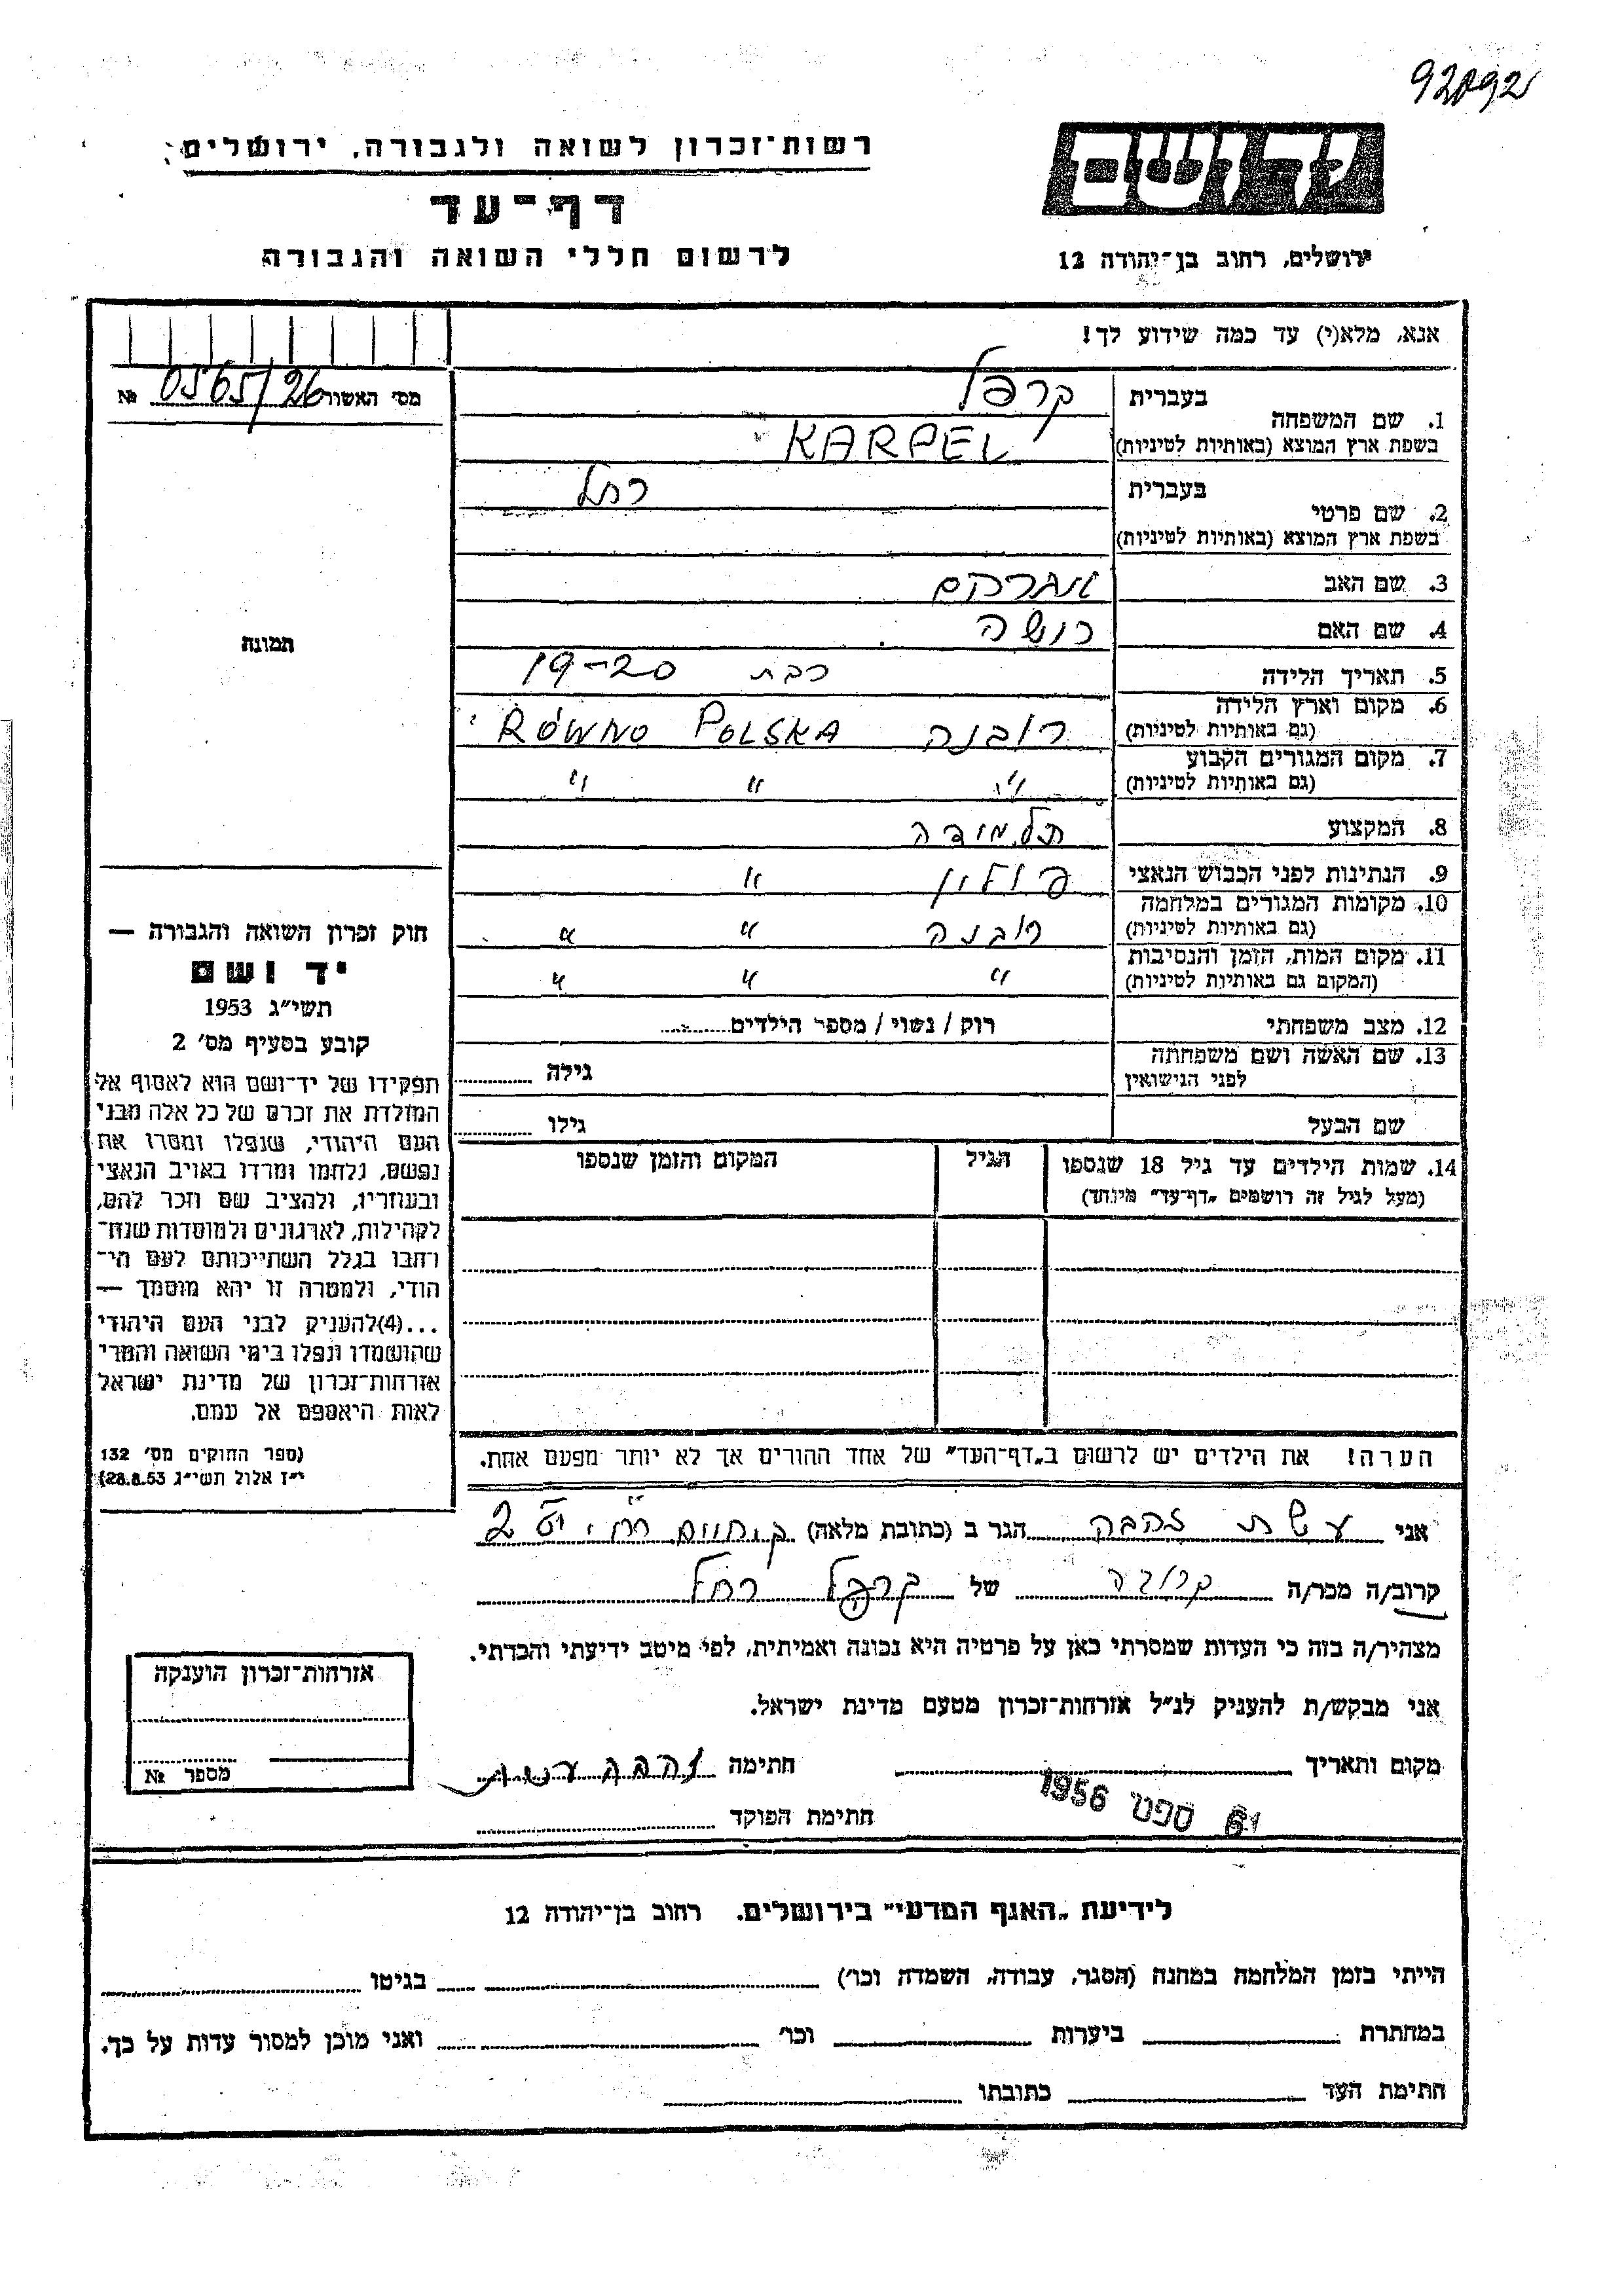 92092
יד ושם
רשות־זכרון לשואה ולגבורה, ירושלים
דף־עד
ירושלים, רחוב בן־יהודה 12
לרשום חללי השואה והגבורה
אנא, מלא(י) עד כמה שידוע לך!
מס׳ האשור 0565/26 №
תמונה
חוק זכרון השואה והגבורה —
יד ושם
תשי״ג 1953
קובע בסעיף מס׳ 2
תפקידו של יד־ושם הוא לאסוף אל
המולדת את זכרם של כל אלה מבני
העם היהודי, שנפלו ומסרו את
נפשם, נלחמו ומרדו באויב הנאצי
ובעוזריו, ולהציב שם וזכר להם,
לקהילות, לארגונים ולמוסדות שנח־
רחבו בגלל השתייכותם לעם הי־
הודי, ולמטרה זו יהא מוסמך —
...(4)להעניק לבני העם היהודי
שהושמדו ונפלו בימי השואה והמרי
אזרחות־זכרון של מדינת ישראל
לאות היאספם אל עמם.
(ספר החוקים מס׳ 132
י״ז אלול תשי״ג 28.8.53)
בעברית קרפל
1. שם המשפחה
בשפת ארץ המוצא (באותיות לטיניות) KARPEL
בעברית רחל
2. שם פרטי
בשפת ארץ המוצא (באותיות לטיניות)
3. שם האב אברהם
4. שם האם רושה
5. תאריך הלידה כבת 19-20
6. מקום וארץ הלידה
(גם באותיות לטיניות) רובנה RÓWNO POLSKA
7. מקום המגורים הקבוע
(גם באותיות לטיניות) " " "
8. המקצוע תלמידה
9. הנתינות לפני הכבוש הנאצי פולין "
10. מקומות המגורים במלחמה
(גם באותיות לטיניות) רובנה " "
11. מקום המות, הזמן והנסיבות
(המקום גם באותיות לטיניות) " " "
12. מצב משפחתי רוק / נשוי / מספר הילדים
13. שם האשה ושם משפחתה
לפני הנישואין גילה
שם הבעל גילו
14. שמות הילדים עד גיל 18 שנספו הגיל המקום והזמן שנספו
(מעל לגיל זה רושמים „דף־עד״ מיוחד)
הערה! את הילדים יש לרשום ב„דף־העד״ של אחד ההורים אך לא יותר מפעם אחת.
אני עשת זהבה הגר ב (כתובת מלאה) ק. חיים 2
קרוב/ה מכר/ה קרובה של קרפל רחל
מצהיר/ה בזה כי העדות שמסרתי כאן על פרטיה היא נכונה ואמיתית, לפי מיטב ידיעתי והכרתי.
אני מבקש/ת להעניק לנ״ל אזרחות־זכרון מטעם מדינת ישראל.
מקום ותאריך חתימה זהבה עשת
ספט 1956
חתימת הפוקד
אזרחות־זכרון הוענקה
מספר №
לידיעת „האגף המדעי״ בירושלים. רחוב בן־יהודה 12
הייתי בזמן המלחמה במחנה (הסגר, עבודה, השמדה וכו׳) בגיטו
במחתרת ביערות וכו׳ ואני מוכן למסור עדות על כך.
חתימת העד כתובתו